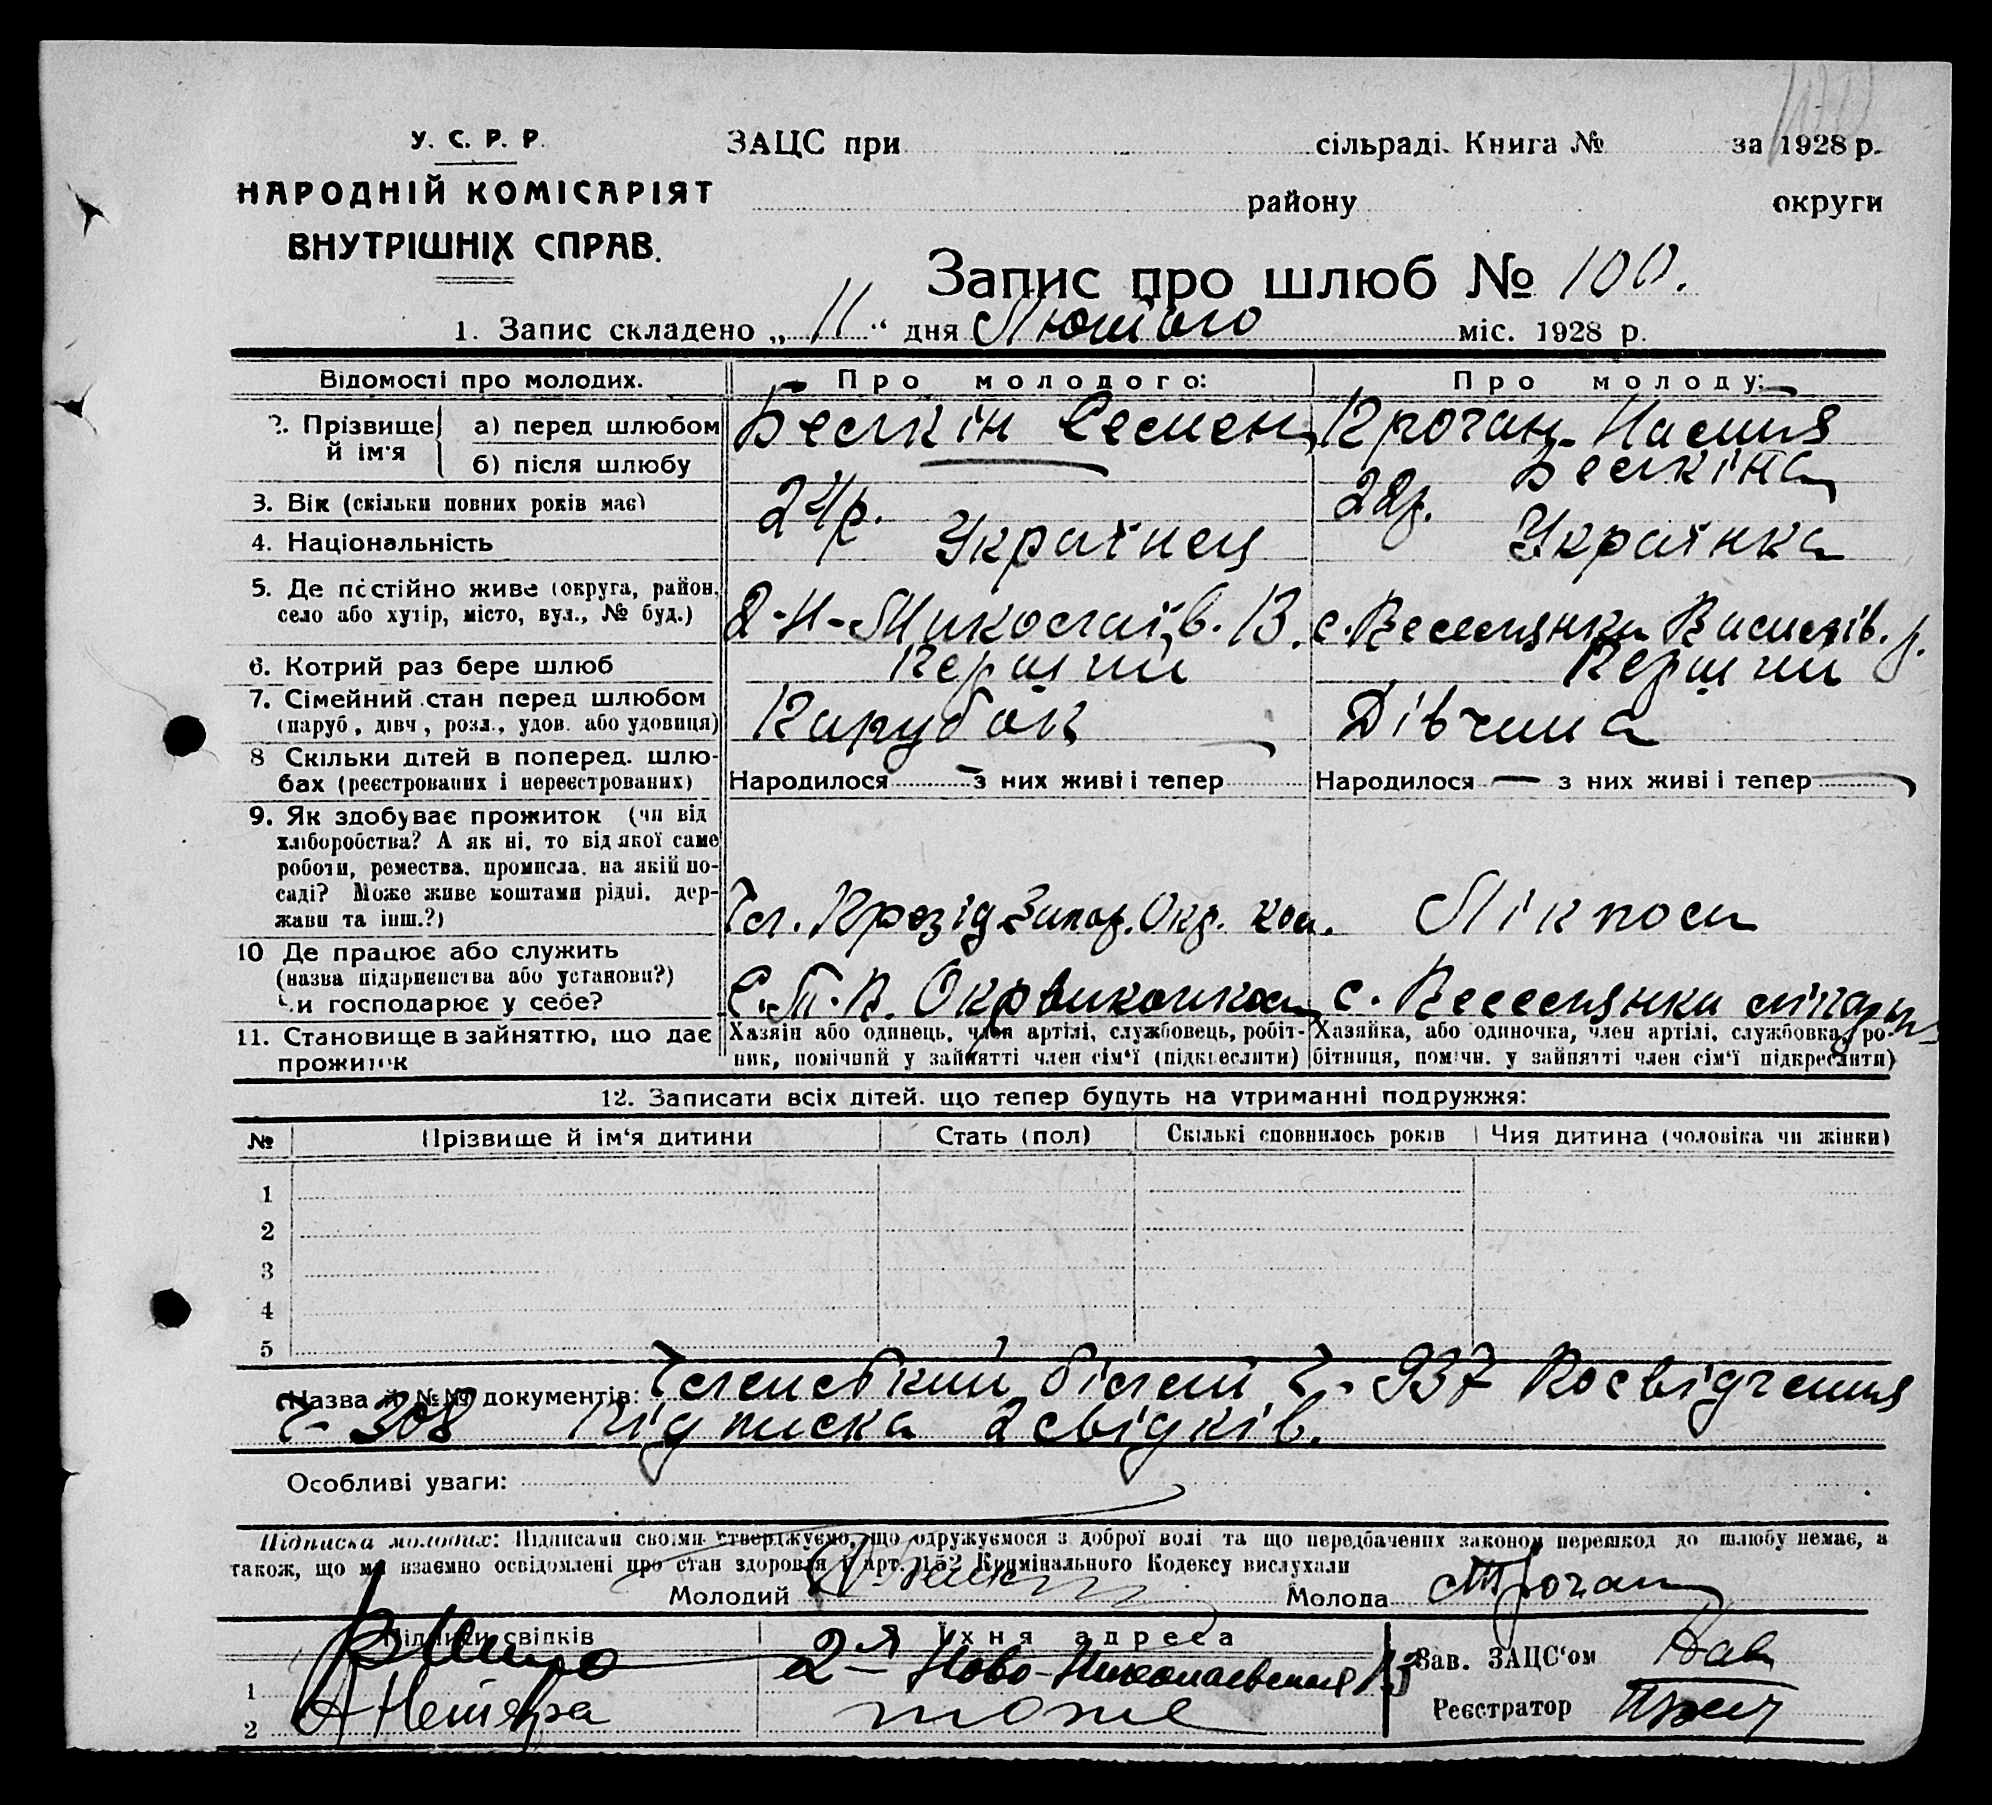 У. С. Р. Р.
НАРОДНІЙ КОМІСАРІЯТ
ВНУТРІШНІХ СПРАВ.
ЗАЦС при сільраді. Книга № за 1928 р.
району округи
Запис про шлюб № 100.
1. Запис складено „ 11 “ дня Лютого міс. 1928 р.
Відомості про молодих. Про молодого: Про молоду:
2. Прізвище й ім'я
а) перед шлюбом Бескін Семен Прочан Настя
б) після шлюбу Бескіна
3. Вік (скільки повних років має) 24 р. 22 р.
4. Національність Українец Українка
5. Де постійно живе (округа, район, село або хутір, місто, вул., № буд.) 2-Н-Миколаїв. 13. с. Веселянка Василів. р.
6. Котрий раз бере шлюб Перший Перший
7. Сімейний стан перед шлюбом (паруб, дівч, розл., удов. або удовиця) Парубок Дівчина
8 Скільки дітей в поперед. шлюбах (реєстрованих і нереєстрованих) Народилося — з них живі і тепер Народилося — з них живі і тепер —
9. Як здобуває прожиток (чи від
хліборобства? А як ні, то від якої саме
роботи, ремества, промисла, на якій по-
саді? Може живе коштами рідні, дер-
жави та інш.?)
Чл. През. Запор. Окр. ком. Лікпом
10 Де працює або служить
(назва підприємства або установи?)
Чи господарює у себе?
Окрвиконком с. Веселянки
11. Становище в зайняттю, що дає
прожиток
Хазяїн або одинець, член артілі, службовець, робіт-
ник, помічний у зайнятті член сім'ї (підкреслити)
Хазяйка, або одиночка, член артілі, службовка, ро-
бітниця, помічн. у зайнятті член сім'ї підкреслити)
12. Записати всіх дітей. що тепер будуть на утриманні подружжя:
№ Прізвище й ім'я дитини Стать (пол) Скількі сповнилось років Чия дитина (чоловіка чи жінки)
1
2
3
4
5
Назва й №№ документів: Членський білет Ч- 937 Посвідчення
Ч- 308 Підписка 2 свідків.
Особливі уваги:
Підписка молодих: Підписами своїми стверджуємо, що одружуємося з доброї волі та що передбачених законом перешкод до шлюбу немає, а
також, що ми взаємно освідомлені про стан здоровля й арт. 152 Кримінального Кодексу вислухали
Молодий Молода Прочан
Підписи свідків Їхня адреса
1 2-я Ново-Николаевская 13
2 тоже
Зав. ЗАЦС'ом
Реєстратор